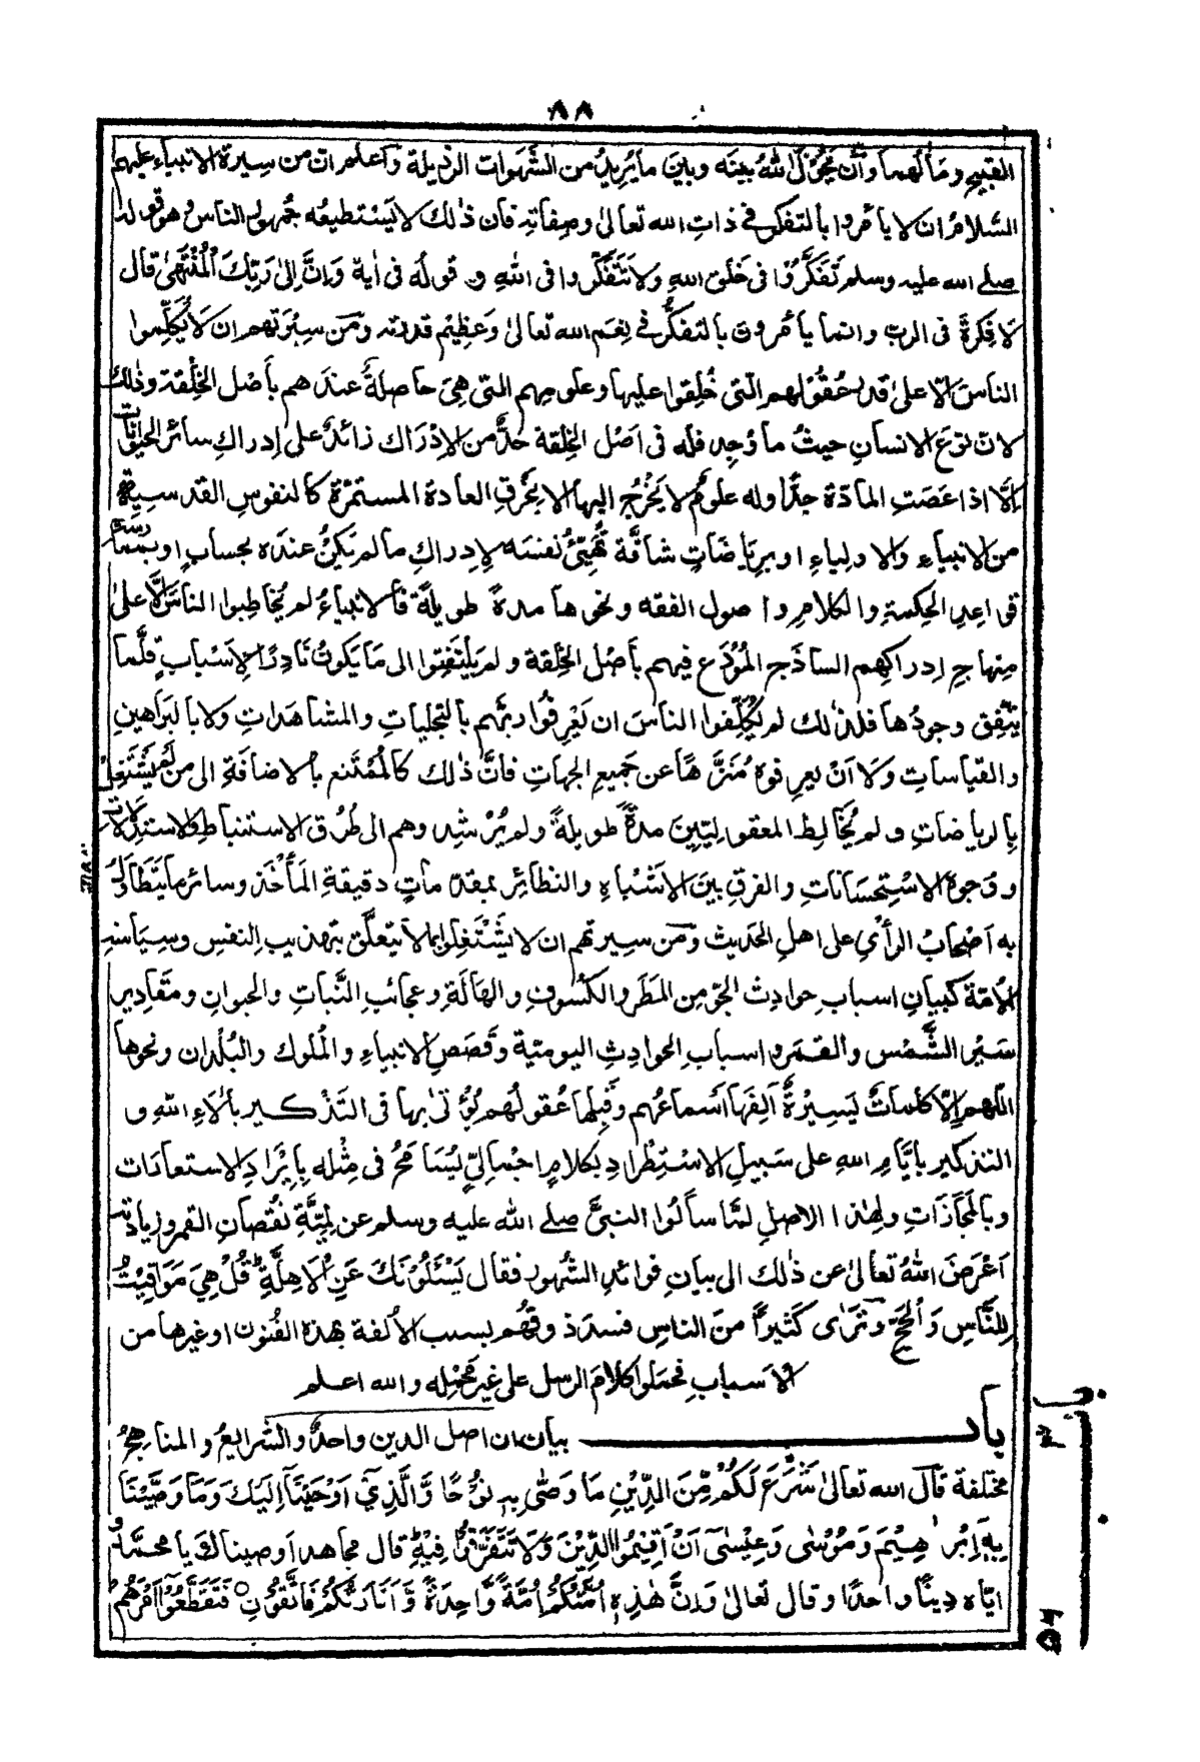 ٨٨
القبيح ومالهما وأن يحول الله بينه وبين ما يريد من الشهوات الرذيلة واعلم ان من سيرة الانبياء عليهم
السَّلام ان لا يأمروا بالتفكر في ذاتِ الله تعالىٰ وصفاته فان ذٰلك لا يَسْتطيعُه جُمهور الناس وهو قوله
صلے الله عليه وسلم تَفَكَّرُوْا فى خَلَقِ اللهِ وَلَا تَتَفَكَّرُوا فى اللهِ و قولُه فى اٰية وَاِنَّ اِلىٰ رَبِّكَ الْمُنْتَهىٰ قال
لَا فِكرَةَ فى الربّ وانما يأمرون بالتفكُّر فى نِعَمِ الله تعالىٰ وَعَظِيْمِ قدرته ومن سيرتهم ان لا يُكلِّموا
الناسَ الّا علىٰ قدر عُقُوْلهم الّتى خُلِقوا عليها وعلومِهم التّى هِىَ حاصلةٌ عندهم بأصْل الخِلْقة وذٰلك
لان نوعَ الانسانِ حيثُ ما وُجِد فله فى اَصْل الخِلقة حدٌّ من الاِدْرَاك زائدٌ على اِدراكِ سائر الحيوانات
اِلَّا اذا عَصَتِ المادّة جدًّا وله علومٌ لا يَخْرُجُ اليها الا بِخَرقِ العادة المستمرّة كالنفوسِ القدسِيّة
من الانبياءِ والاولياءِ او برِياضَاتٍ شاقَّة تُهيّئُ نفسَه لِاِدراكِ ما لم يَكنْ عنده بحسابٍ او بممارسة
قواعِدِ الحِكمةِ والكلامِ واصول الفقه ونحوها مدةً طويلةً فالانبياءُ لم يُخاطِبوا الناسَ الّا علىٰ
مِنهاجِ اِدراكِهم الساذَج المُوْدَع فيهم بأصْل الخِلقة ولم يَلْتَفِتوا الى مَا يَكونُ نَادِرًا لِاَسْبابٍ قلَّما
يَتّفِق وجودُها فلذٰلك لم يُكَلِّفوا الناسَ ان يَعْرِفُوا ربَّهم بالتجليات والمشاهَداتِ ولا بالبَراهينِ
والقياساتِ وَلَا اَنْ يعرِفوه مُنَزَّهًا عن جَميعِ الجهاتِ فانَّ ذٰلك كالمُمْتَنع بالاضافَةِ الى من لَمْ يَشْتَغِلْ
بِالرياضاتِ ولم يُخَالِط المعقولِيّينَ مدةً طويلةً ولم يُرْشِدوهم الى طُرُق الاستنباطِ والاستدلالات
ووجوه الاسْتِحسَاناتِ والفرقِ بينَ الاَشْباهِ والنظائرِ بمقدماتٍ دقيقةِ المَأْخَذ وسائر ما يَتَطَاوَلُ
به اَصْحابُ الرأْىِ على اهلِ الحَديث ومن سيرتهم ان لا يشْتَغِلوا بما لا يتعلَّق بتهذيبِ النفس وسِيَاسَةِ
الاُمّة كبيانِ اسبابِ حوادِث الجوِّ مِن المَطَر والكُسُوفِ والهَالَةِ وعجائبِ النَّباتِ والحيوانِ ومَقادِيرِ
سَيْرِ الشَّمْس والقَمَر واسبابِ الحوادِثِ اليومية وقَصَصِ الانبياءِ والمُلوك والبُلْدان ونحوها
اللّهم اِلّا كلماتٌ يَسِيْرةٌ اَلِفَهَا اَسماعُهم وقَبِلها عُقولُهم يُؤْتىٰ بها فى التَذْكير بآلاءِ اللهِ و
التذكير بأيَّامِ اللهِ على سَبيلِ الاسْتِطْرادِ بكلامٍ اجْمالِيٍّ يُسَامَحُ فى مِثْله بِاِيْرَادِ الاستعارات
وبالمَجَازَاتِ ولِهٰذا الاصلِ لمّا سألُوا النبىَّ صلے الله عليه وسلم عن لِمِيَّةِ نُقْصانِ القمر وزيادته
اَعْرَضَ اللهُ تعالىٰ عن ذٰلك الى بيانِ فوائدِ الشُهور فقال يَسْئَلُوْنَكَ عَنِ الْاَهِلَّةِ قُلْ هِىَ مَوَاقِيْتُ
لِلنَّاسِ وَالْحَجِّ وتَرىٰ كَثيراً منَ الناسِ فسدَ ذوقُهُم بسبب الاُلفة بهذه الفُنون او غيرها من
الاسبابِ فحملوا كلامَ الرسل على غير مَحْمِله والله اعلم
باب بيان ان اصل الدين واحدٌ والشرايعُ والمناهجُ
مختلفة قال الله تعالىٰ شَرَعَ لَكُمْ مِّنَ الدِّيْنِ مَا وَصّٰى بِهٖ نُوْحًا وَّالَّذِىْٓ اَوْحَيْنَآ اِلَيْكَ وَمَا وَصَّيْنَا
بِهٖٓ اِبْرٰهِيْمَ وَمُوْسٰى وَعِيْسٰٓى اَنْ اَقِيْمُوا الدِّيْنَ وَلَا تَتَفَرَّقُوْا فِيْهِ قال مجاهد اَوصيناك يا محمّد
ايّاه دِينًا واحدًا وقال تعالىٰ وَاِنَّ هٰذِهٖٓ اُمَّتُكُمْ اُمَّةً وَّاحِدَةً وَّاَنَا رَبُّكُمْ فَاتَّقُوْنِ ○ فَتَقَطَّعُوْٓا اَمْرَهُمْ